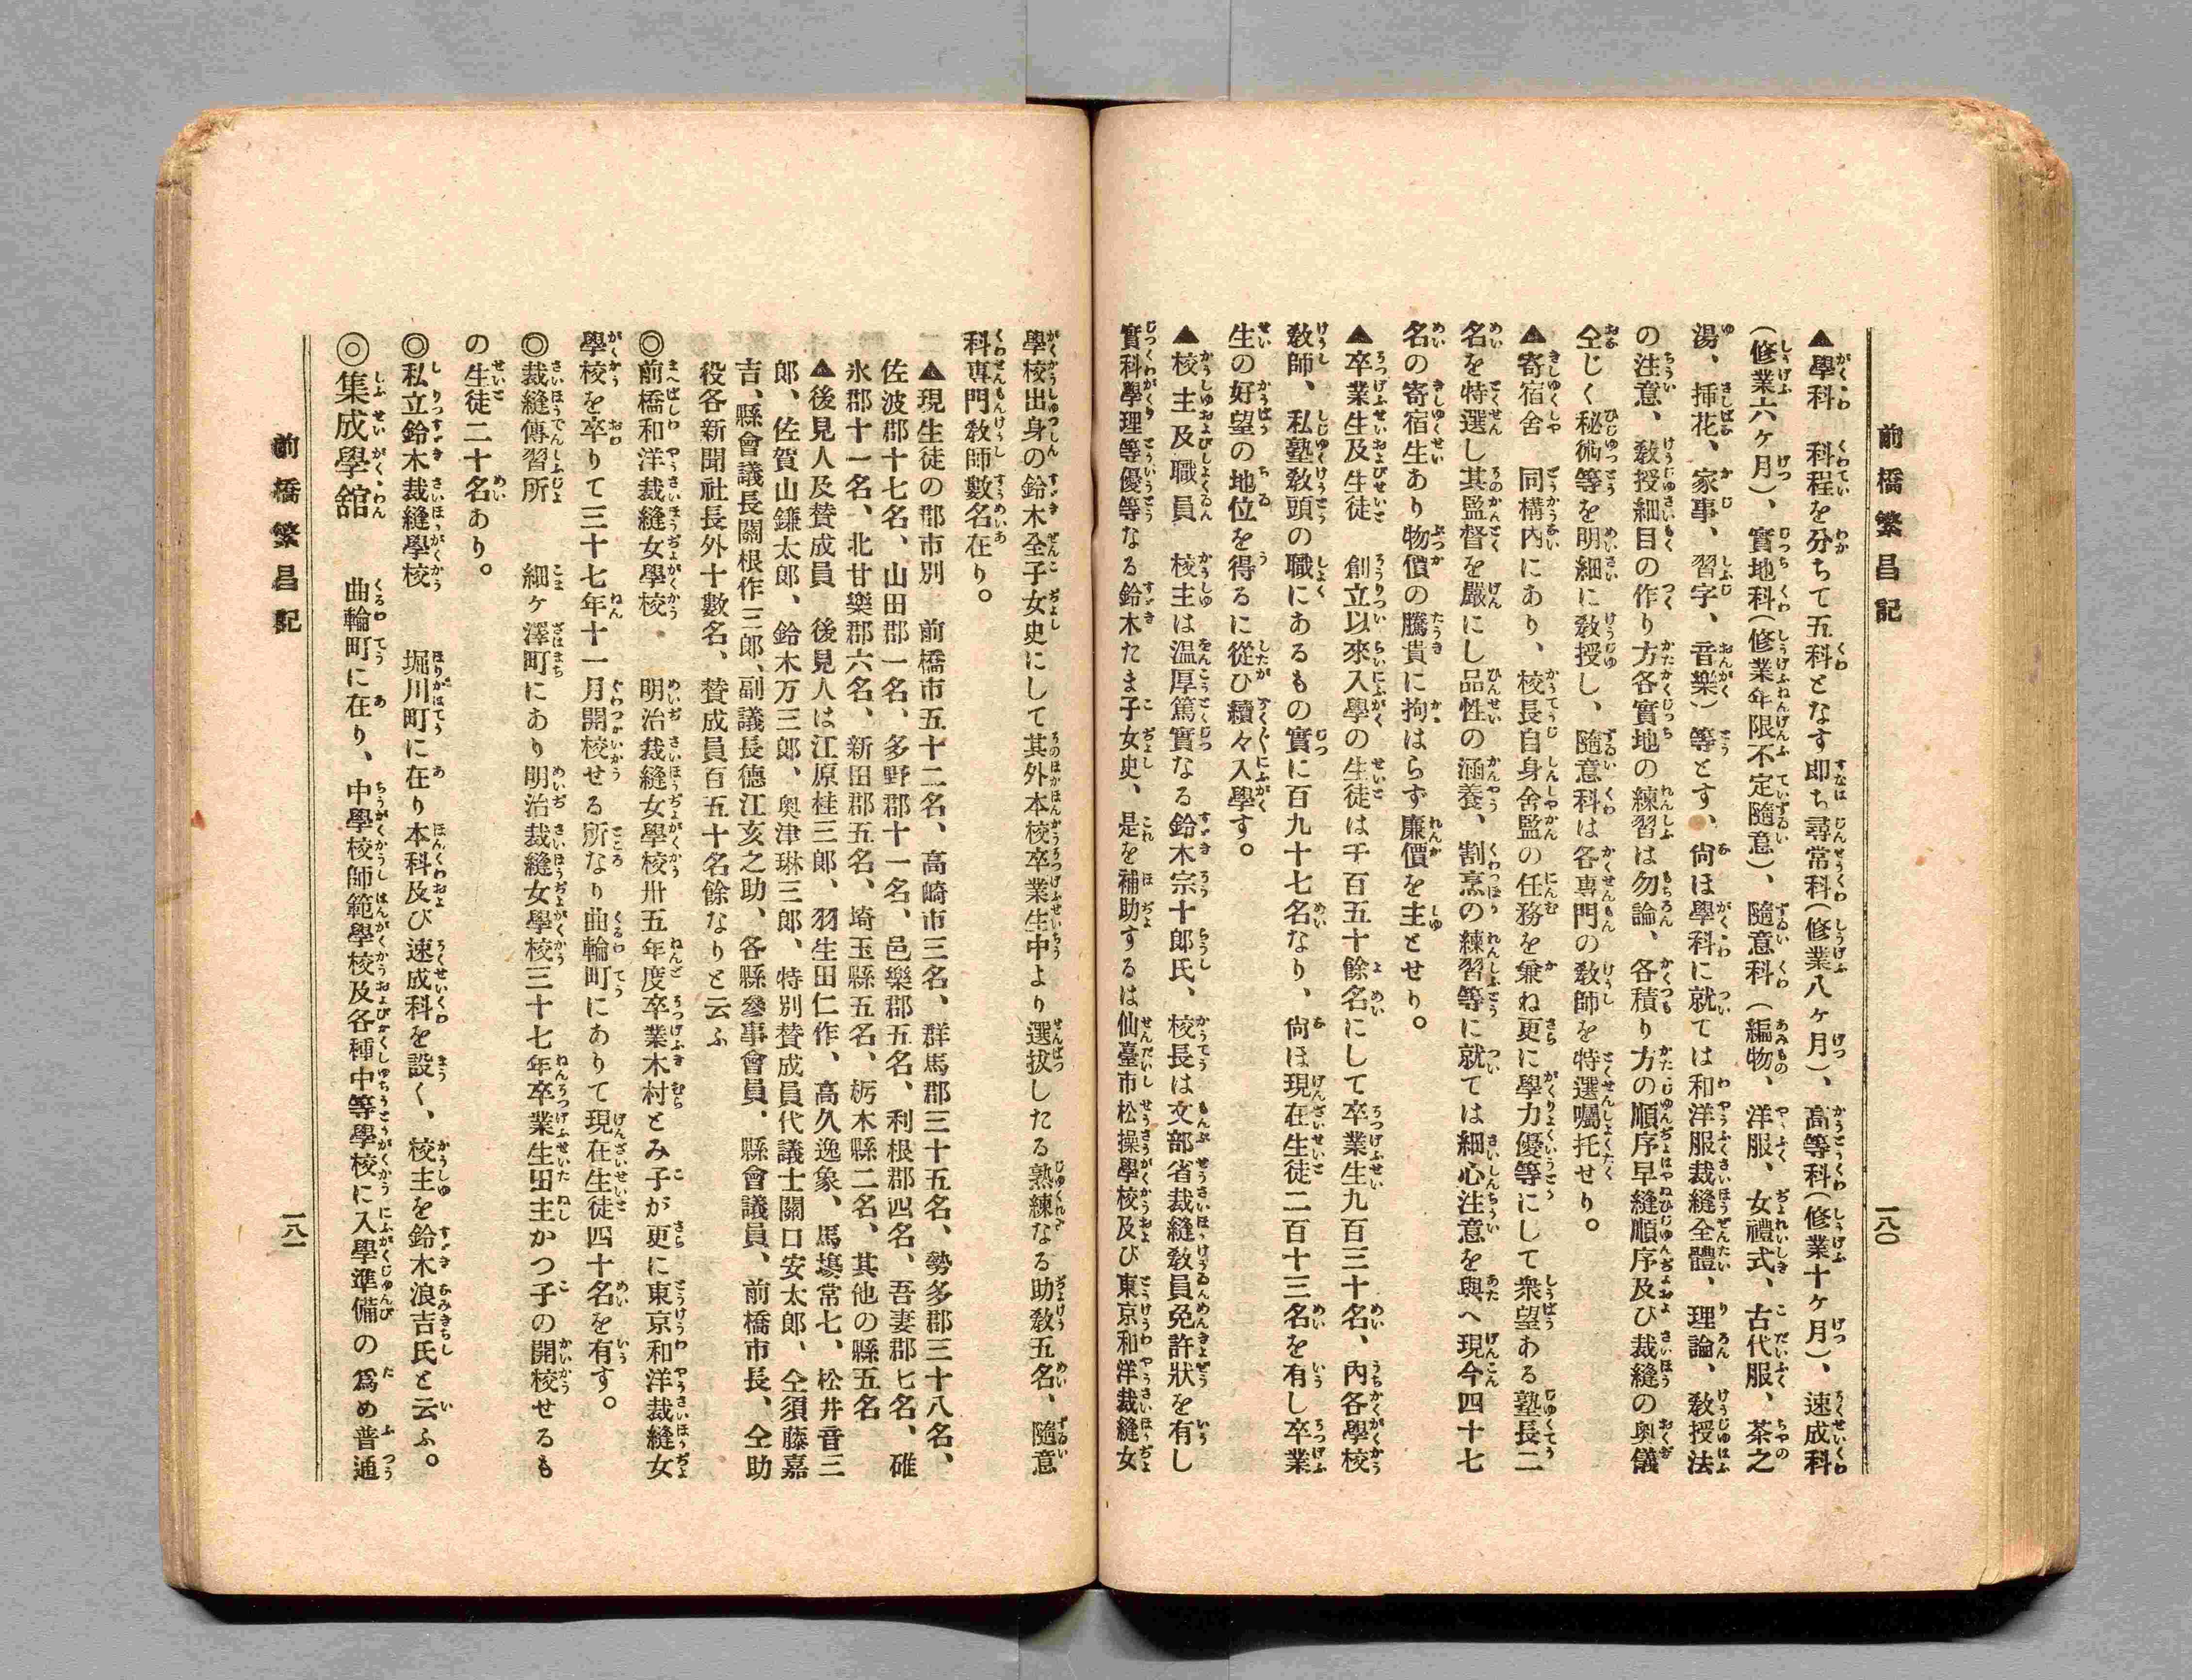 前橋繁昌記
一八〇
▲學科　科程を分ちて五科となす即ち尋常科(修業八ヶ月)、高等科(修業十ヶ月)、速成科
(修業六ヶ月)、實地科(修業年限不定隨意)、隨意科(編物、洋服、女禮式、古代服、茶之
湯、挿花、家事、習字、音樂)等とす、尙ほ學科に就ては和洋服裁縫全體、理論、敎授法
の注意、敎授細目の作り方各實地の練習は勿論、各積り方の順序早縫順序及び裁縫の奥儀
仝じく秘術等を明細に敎授し、隨意科は各專門の敎師を特選囑托せり。
▲寄宿舍　同構內にあり、校長自身舍監の任務を兼ね更に學力優等にして衆望ある塾長二
名を特選し其監督を嚴にし品性の涵養、割烹の練習等に就ては細心注意を與へ現今四十七
名の寄宿生あり物價の騰貴に拘はらず廉價を主とせり。
▲卒業生及生徒　創立以來入學の生徒は千百五十餘名にして卒業生九百三十名、內各學校
敎師、私塾敎頭の職にあるもの實に百九十七名なり、尙ほ現在生徒二百十三名を有し卒業
生の好望の地位を得るに從ひ續々入學す。
▲校主及職員　校主は温厚篤實なる鈴木宗十郎氏、校長は文部省裁縫敎員免許狀を有し
實科學理等優等なる鈴木たま子女史、是を補助するは仙臺市松操學校及び東京和洋裁縫女
學校出身の鈴木全子女史にして其外本校卒業生中より選拔したる熟練なる助敎五名、隨意
科專門敎師數名在り。
▲現生徒の郡市別　前橋市五十二名、高崎市三名、群馬郡三十五名、勢多郡三十八名、
佐波郡十七名、山田郡一名、多野郡十一名、邑樂郡五名、利根郡四名、吾妻郡七名、碓
氷郡十一名、北甘樂郡六名、新田郡五名、埼玉縣五名、栃木縣二名、其他の縣五名
▲後見人及賛成員　後見人は江原桂三郎、羽生田仁作、高久逸象、馬塲常七、松井音三
郎、佐賀山鎌太郎、鈴木万三郎、奥津琳三郎、特別賛成員代議士關口安太郎、仝須藤嘉
吉、縣會議長關根作三郎、副議長德江亥之助、各縣參事會員、縣會議員、前橋市長、仝助
役各新聞社長外十數名、賛成員百五十名餘なりと云ふ
◎前橋和洋裁縫女學校　明治裁縫女學校卅五年度卒業木村とみ子が更に東京和洋裁縫女
學校を卒りて三十七年十一月開校せる所なり曲輪町にありて現在生徒四十名を有す。
◎裁縫傳習所　細ヶ澤町にあり明治裁縫女學校三十七年卒業生田主かつ子の開校せるも
の生徒二十名あり。
◎私立鈴木裁縫學校　堀川町に在り本科及び速成科を設く、校主を鈴木浪吉氏と云ふ。
◎集成學舘　曲輪町に在り、中學校師範學校及各種中等學校に入學準備の爲め普通
前橋繁昌記
一八一